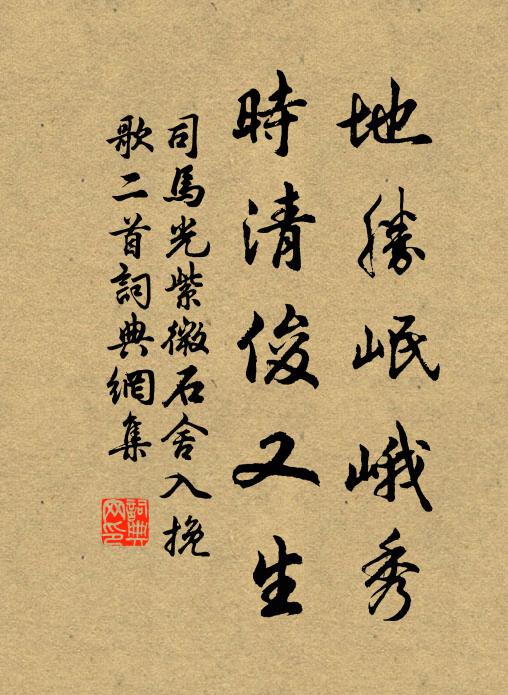 地勝岷峨秀
時清俊又生
司馬光紫微石舍入挽
歌二首詞典網集
詞典网印